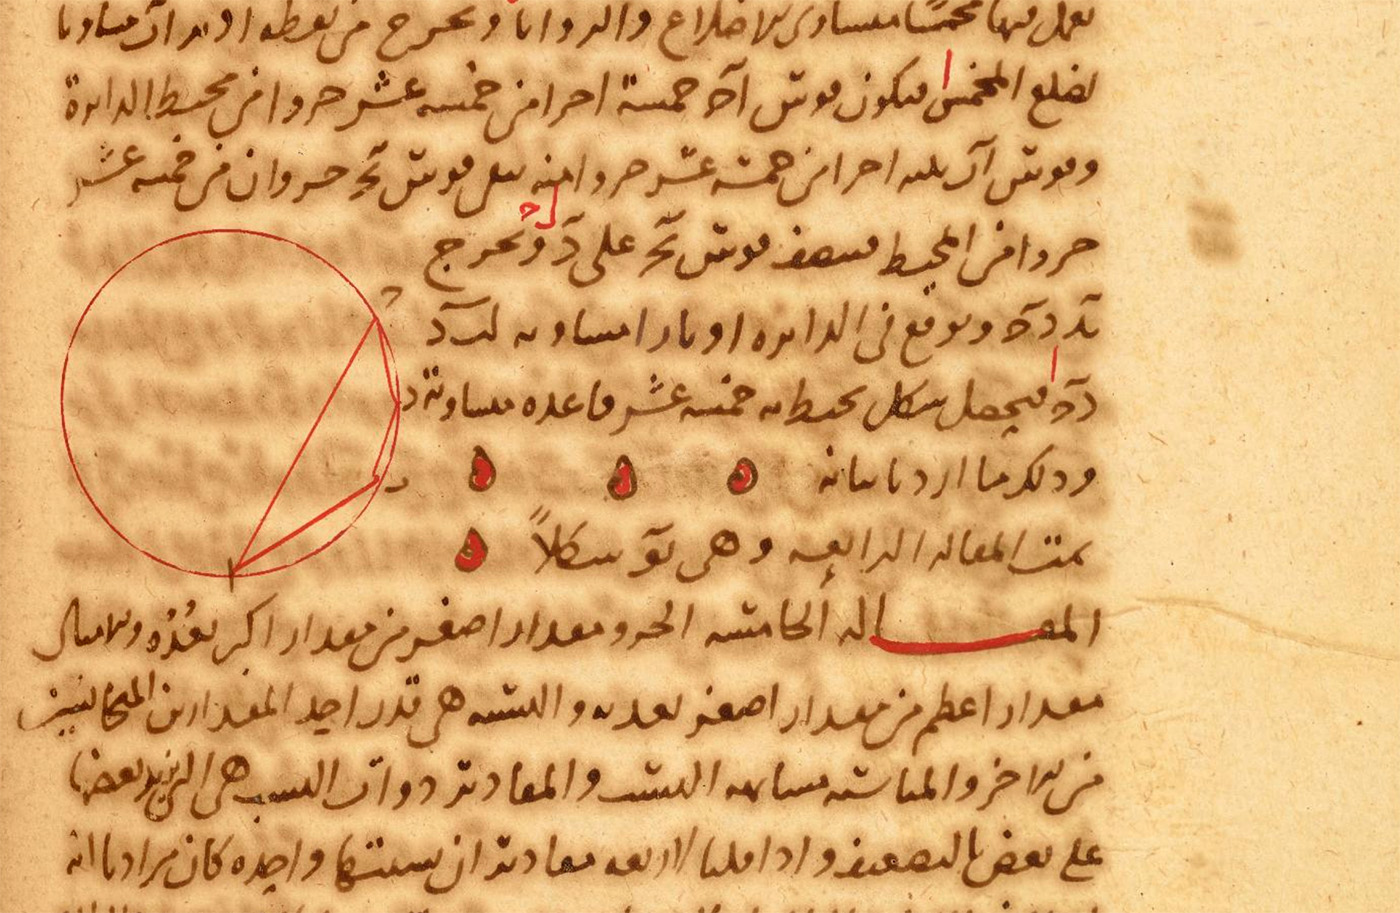 نعمل فيها مخمسًا متساوى الاضلاع والزوايا ونخرج من نقطه ا وتر اب مساويا
لضلع المخمس فيكون قوس اح خمسة اجزا من خمسه عشر جزوا من محيط الدايرة
وقوس اب ثلثه اجزا من خمسه عشر جزوا منه يبقى قوس بح جزوان من خمسه عشر
جزوا من المحيط فننصف قوس بح على د ونخرج
بد دح ونوقع فى الدايره اوتارا مساويه لب د
دح فيحصل شكل يحيط به خمسه عشر قاعده متساوية
وذلك ما اردنا بيانه
تمت المقاله الرابعه وهى يو شكلاً
المقاله الخامسه الجزو مقدار اصغر من مقدار اكبر يعُدُه والامثال
مقدار اعظم من مقدار اصغر يعد به والنسبه هى قدر احد المقدارين المتجانسين
من الاخر والمناسبه مشابهه النسب والمقادير ذوات النسب هى التى يزيد بعضها
على بعض بالتضعيف واذا قلنا لاربعه مقادير ان نسبتها واحده كان مرادنا انه